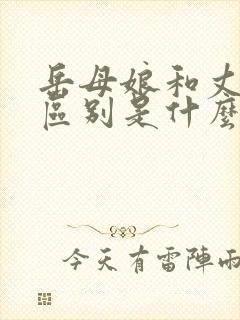 岳母娘和丈
區別是什麼
今天有雷陣雨